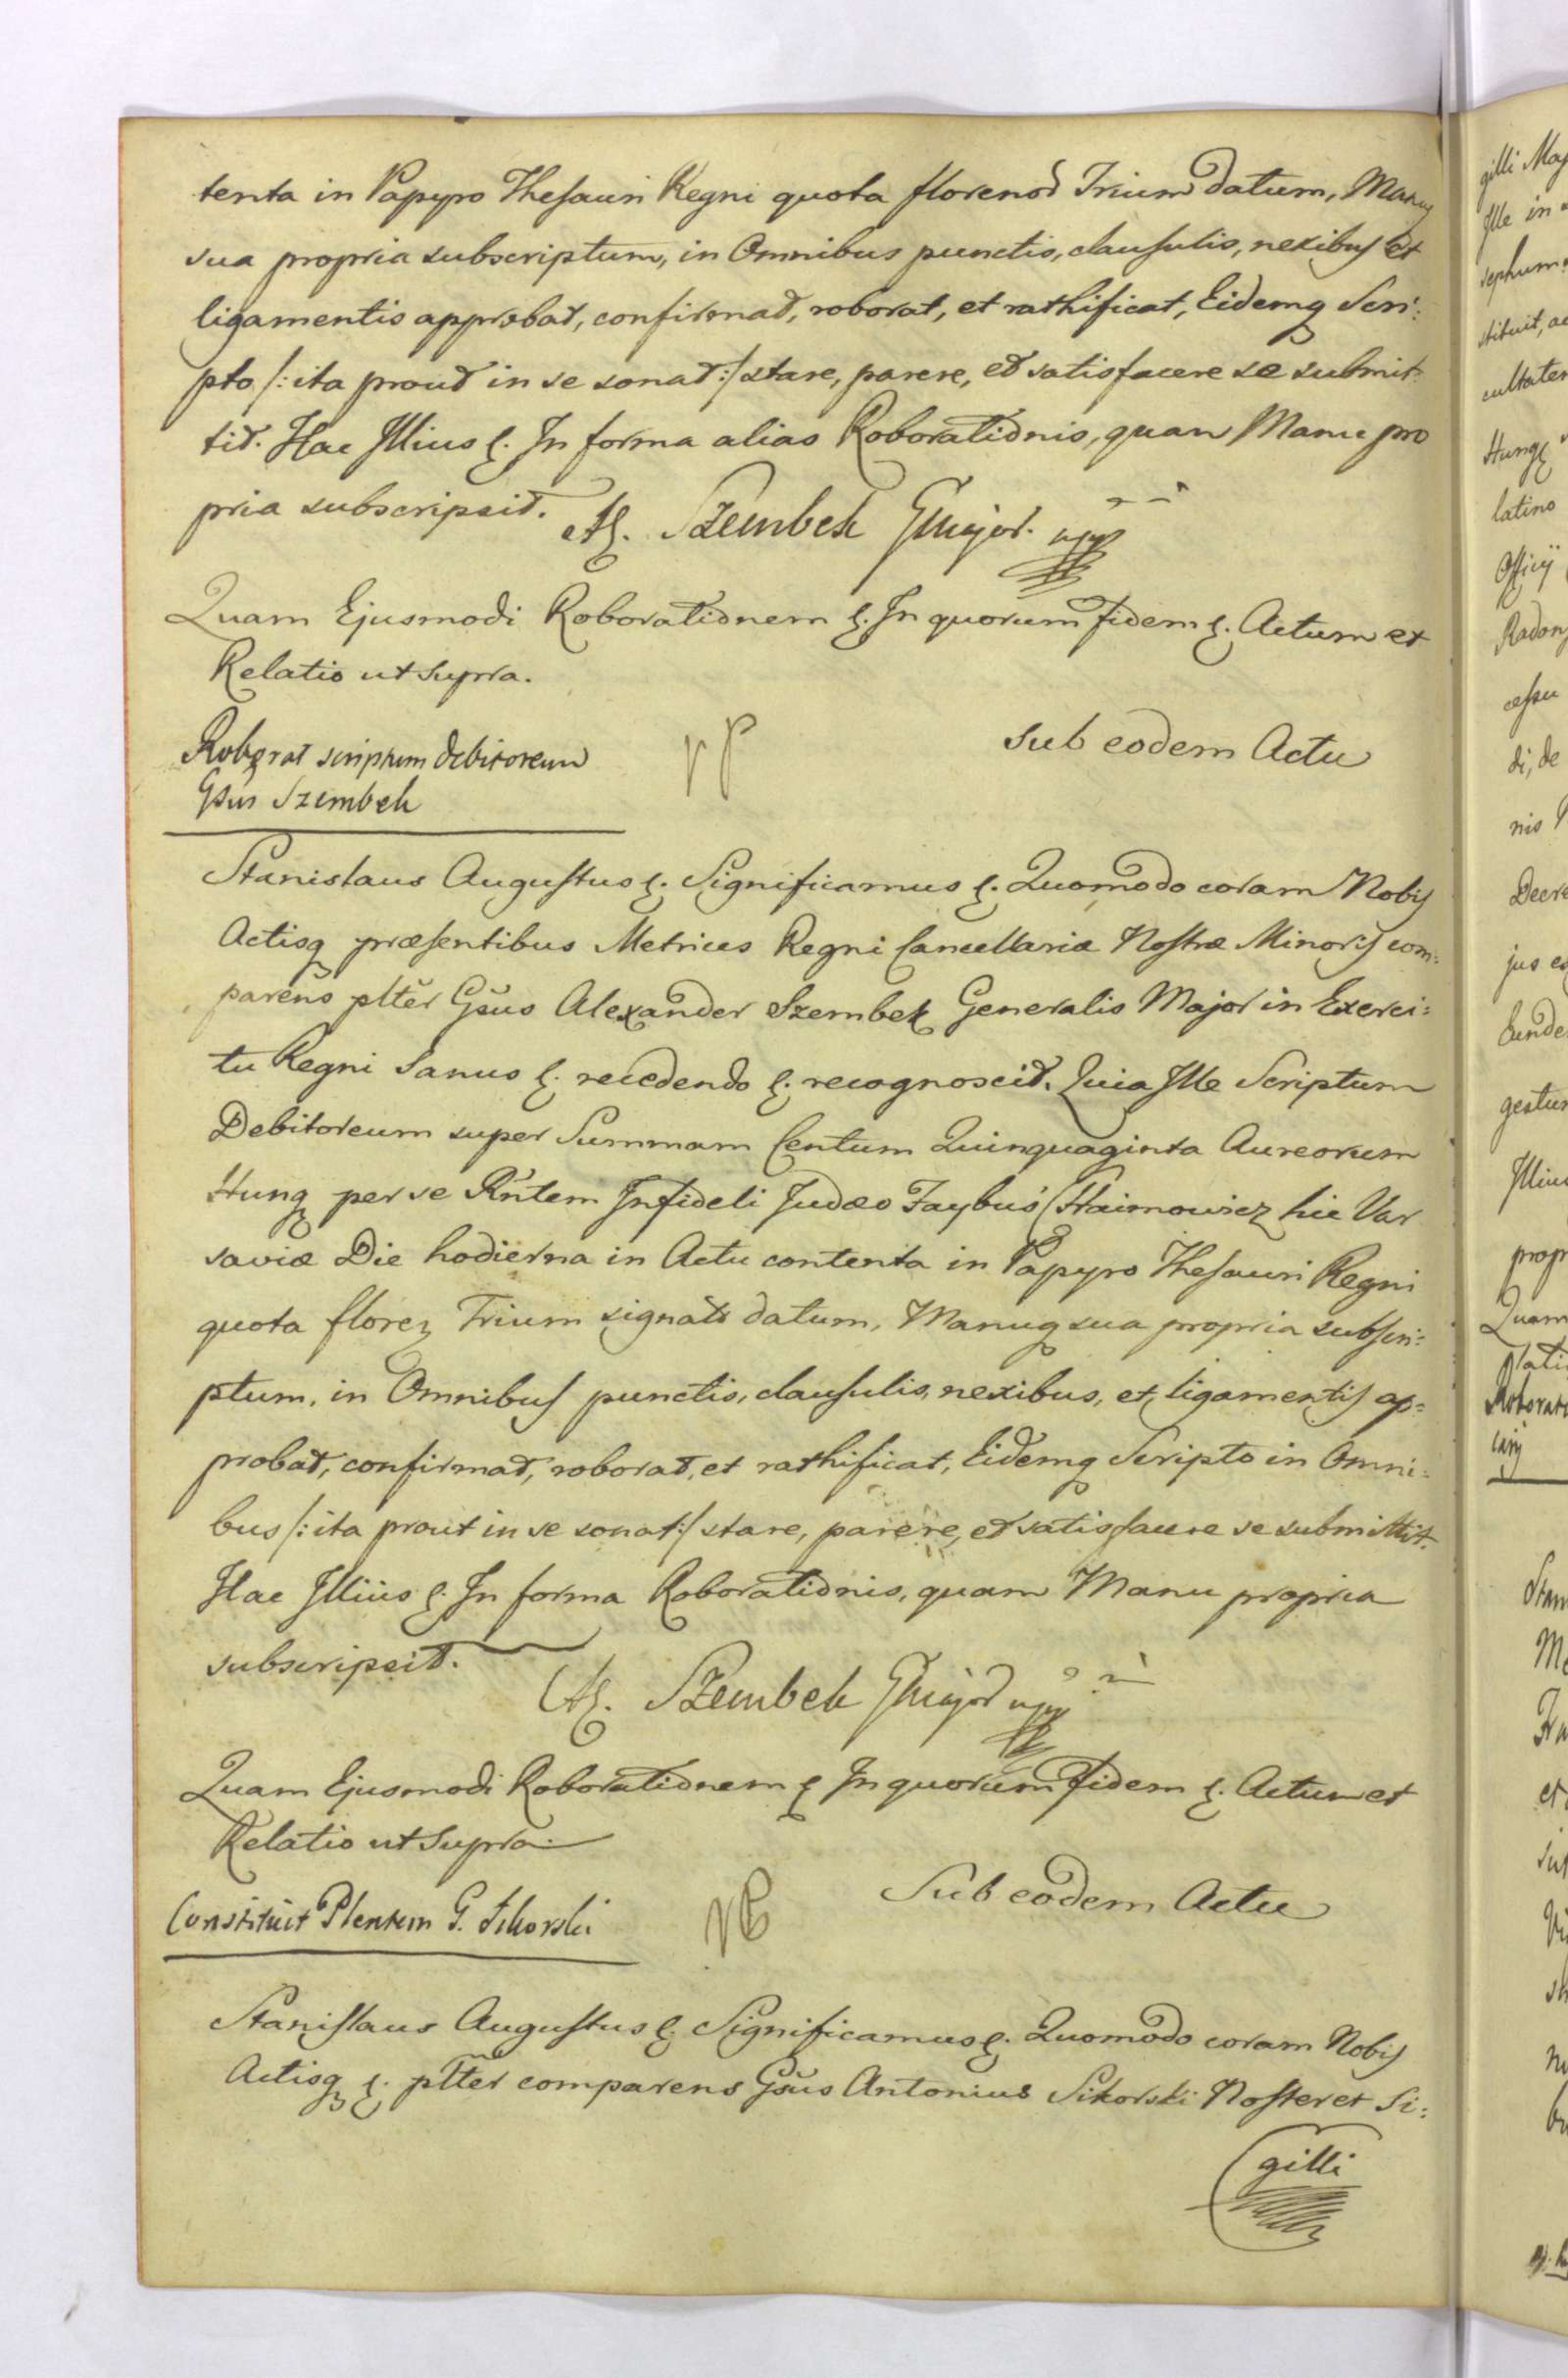 tenta in Papyro Thesauri Regni quota florenor Trium datum, Manuq
sua propria subscriptum, in Omnibus punctis, clausulis, nexibus et
ligamentis approbat, confirmat, roborat, et rathificat, Eidemq Scri:
pto /: ita prout in se sonat :/ stare, parere, et satisfacere se submit
tit. Hac Illius &. In forma alias Roborationis, quam Manu pro
pria subscripsit.
Al. Szembek GMajor. mpp
Quam Ejusmodi Roborationem &. In quorum fidem &. Actum et
Relatio ut supra.
Roborat scriptum debitoreum
Gsus Szembek
sub eodem Actu
Stanislaus Augustus &. Significamus &. Quomodo coram Nobis
Actisq præsentibus Metrices Regni Cancellariæ Nostræ Minoris com:
parens plter Gsus Alexander Szembek Generalis Major in Exerci:
tu Regni Sanus &. recedendo &. recognoscit. Quia Ille Scriptum
Debitoreum super Summam Centum Quinquaginta Aureorum
Hung per se Rntem Infideli Judæo Faybus Haimowicz hic Var
saviæ Die hodierna in Actu contenta in Papyro Thesauri Regni
quota floren Trium signato datum, Manuq sua propria subscri:
ptum, in Omnibus punctis, clausulis, nexibus, et ligamentis ap=
probat, confirmat, roborat, et rathificat, Eidemq Scripto in Omni:
bus /: ita prout in se sonat :/ stare, parere, et satisfacere se submittit.
Hac Illius &. In forma Roborationis, quam Manu propria
subscripsit.
Al. Szembek GMajor mpp
Quam Ejusmodi Roborationem & In quorum fidem &. Actum et
Relatio ut supra.
Constituit Plentem G. Sikorski
Sub eodem Actu
Stanislaus Augustus &. Significamus &. Quomodo coram Nobis
Actisq &. plter comparens Gsus Antonius Sikorski Noster et Si:
gilli